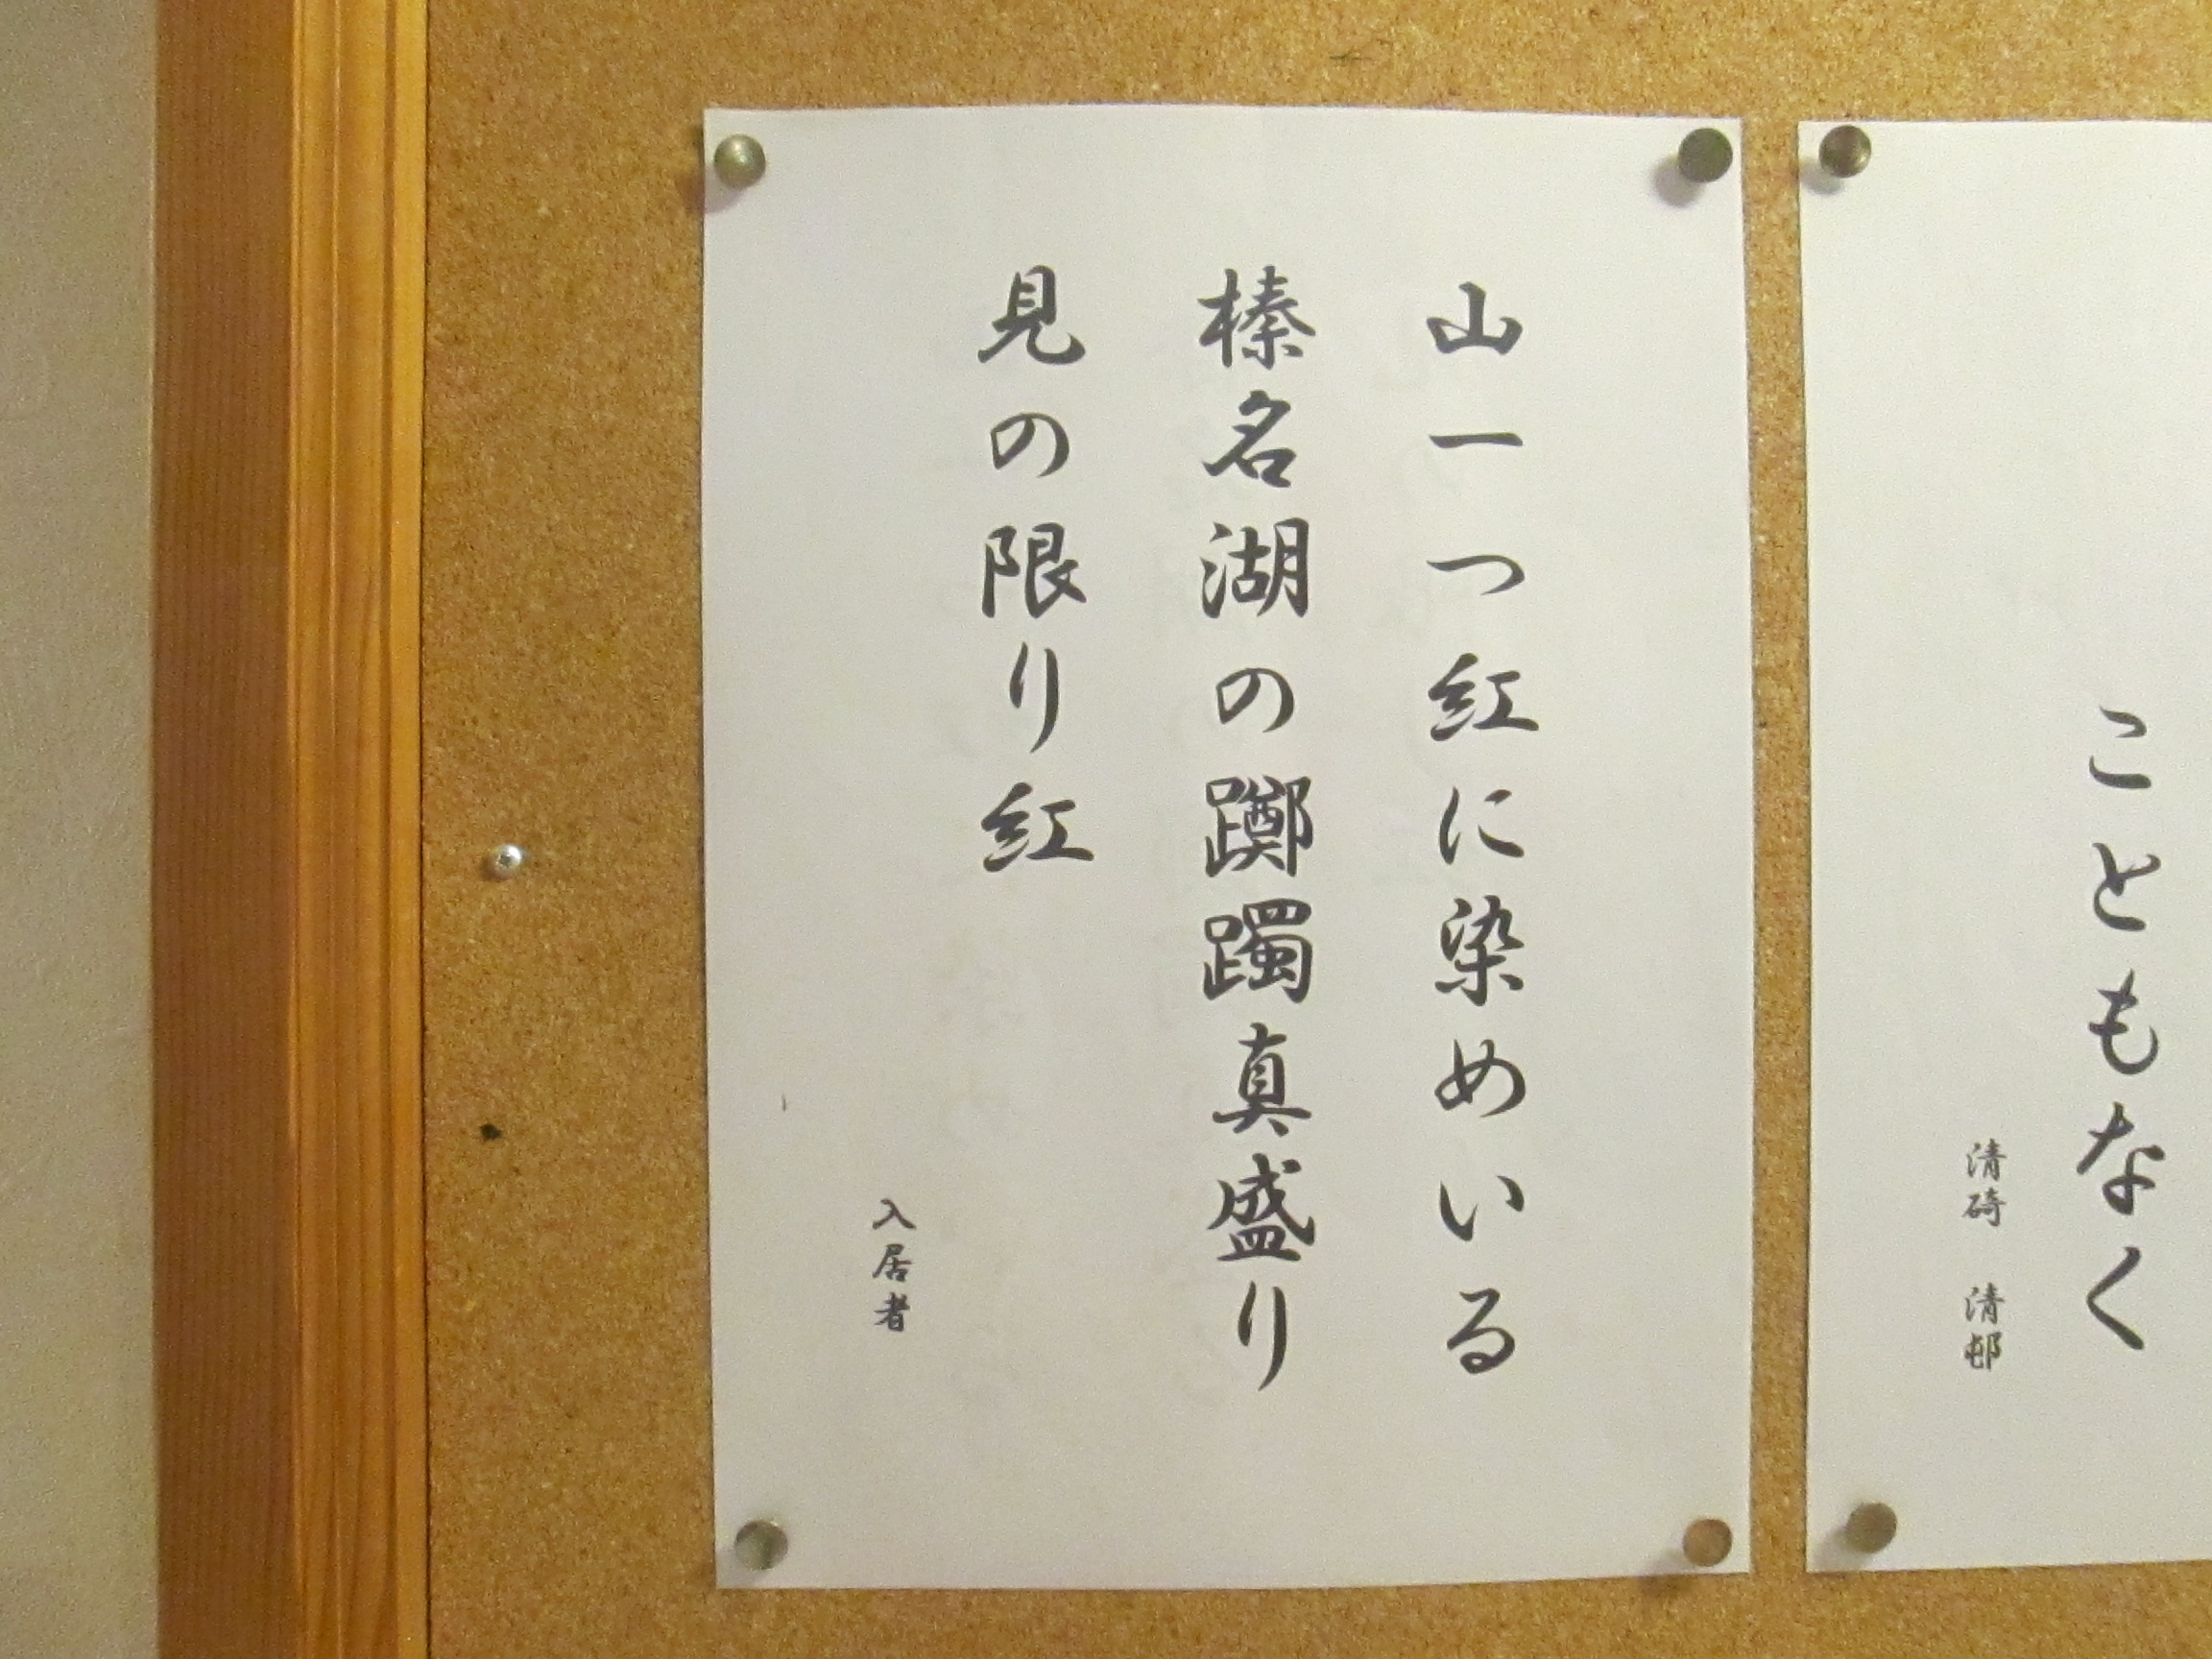 こともなく
清碕 清邨
山一つ紅に染めいる
榛名湖の躑躅真盛り
見の限り紅
入居者